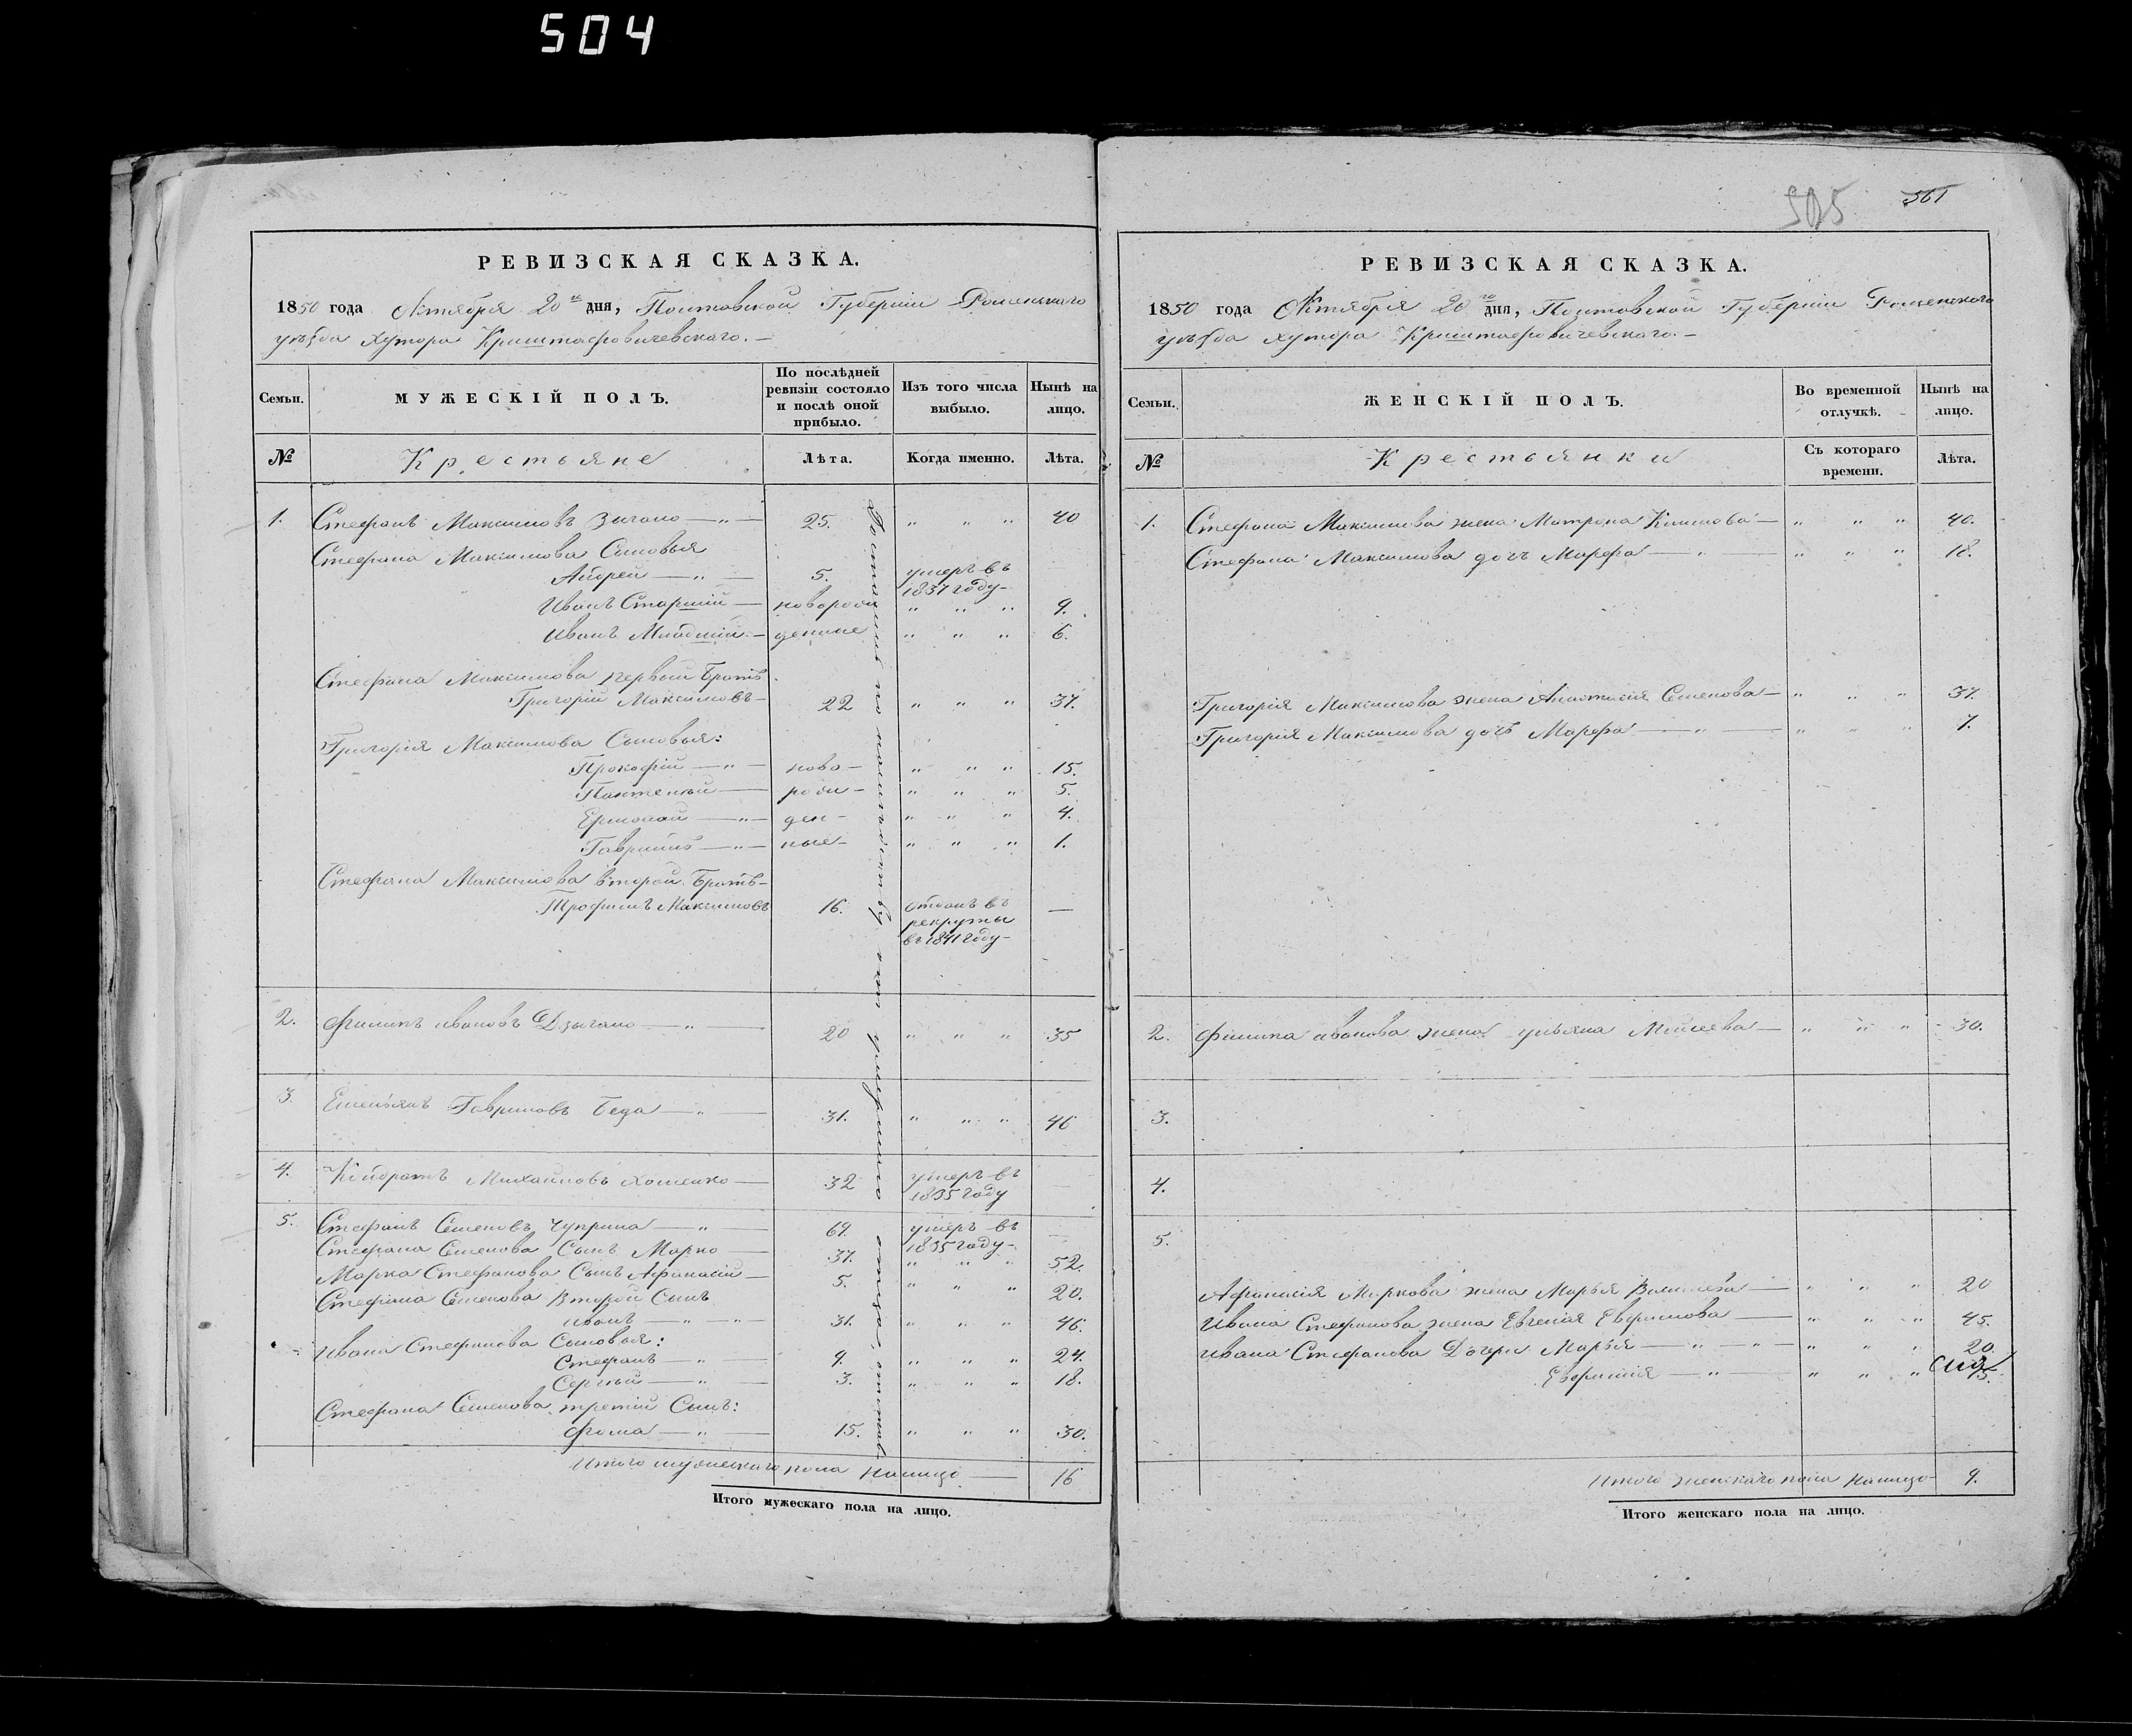 504
505
561
РЕВИЗСКАЯ СКАЗКА.
1850 года Октября 20го дня, Полтавской Губернии Роменскаго
уѣзда хутора Криштафовичевскаго.
Семьи.
МУЖЕСКІЙ ПОЛЪ.
По послѣдней ревизіи состояло и послѣ оной прибыло.
Изъ того числа выбыло.
Нынѣ на лицо.
№
Крестьяне
Лѣта.
Когда именно.
Лѣта.
1. Стефанъ Максимовъ — " — 25. " " " 40
Стефана Максимова Сыновья
Андрей — " — 5. умеръ въ 1837 году —
Иванъ Старшій — новорож " " " 9.
Иванъ Младшій — денные " " " 6.
Стефана Максимова первый Братъ
Григорій Максимовъ — 22 " " " 37.
Григорія Максимова Сыновья:
Прокофій — " — ново- " " " 15.
Пантелей — рож- " " " 5.
Ермолай — " — ден- " " " 4.
Гаврилъ — " — ные- " " " 1.
Стефана Максимова второй Братъ —
Трофимъ Максимовъ 16. отданъ въ рекруты въ 1841 году — —
2. Филипъ Ивановъ Дзыгало — " — 20 " " " 35
3. Емельянъ Гавриловъ Беда — " — 31. " " " 46
4. Кондратъ Михайловъ Хоменко — 32 умеръ въ 1835 году —
5. Стефанъ Семеновъ Чуприна — " — 69. умеръ въ 1835 году — —
Стефана Семенова Сынъ Марко — 37. " " " 52.
Марка Стефанова Сынъ Афанасій — 5. " " " 20.
Стефана Семенова Второй Сынъ
Иванъ — " — " — 31. " " " 46.
Ивана Стефанова Сыновья:
Стефанъ — " — 9. " " " 24.
Сергѣй — " — 3. " " " 18.
Стефана Семенова третій Сынъ:
Фома — " — 15. " " " 30.
Итого мужескаго пола налицо — 16
Итого мужескаго пола на лицо.
РЕВИЗСКАЯ СКАЗКА.
1850 года Октября 20го дня, Полтавской Губерніи Роменскаго
уѣзда хутора Криштафовичевскаго. —
Семьи.
ЖЕНСКІЙ ПОЛЪ.
Во временной отлучкѣ.
Нынѣ на лицо.
№
Крестьянки
Съ котораго времени.
Лѣта.
1. Стефана Максимова жена Матрона Климова — " " " 40.
Стефана Максимова дочъ Марфа — " — " " " 18.
Григорія Максимова жена Анастасія Семенова — " " " 37.
Григорія Максимова дочъ Марфа — " — " " " 7.
2. Филипа Иванова жена Ульяна Моисеева — " " " 30.
3.
4.
5.
Афанасія Маркова жена Марья Васильева — " " " 20
Ивана Стефанова жена Евгенія Ефримова — " " " 45.
Ивана Стефанова Дочери Марья — " — " — " " " 20.
Ефримія — " — " " " 15.
Итого женскаго пола налицо 9.
Итого женскаго пола на лицо.